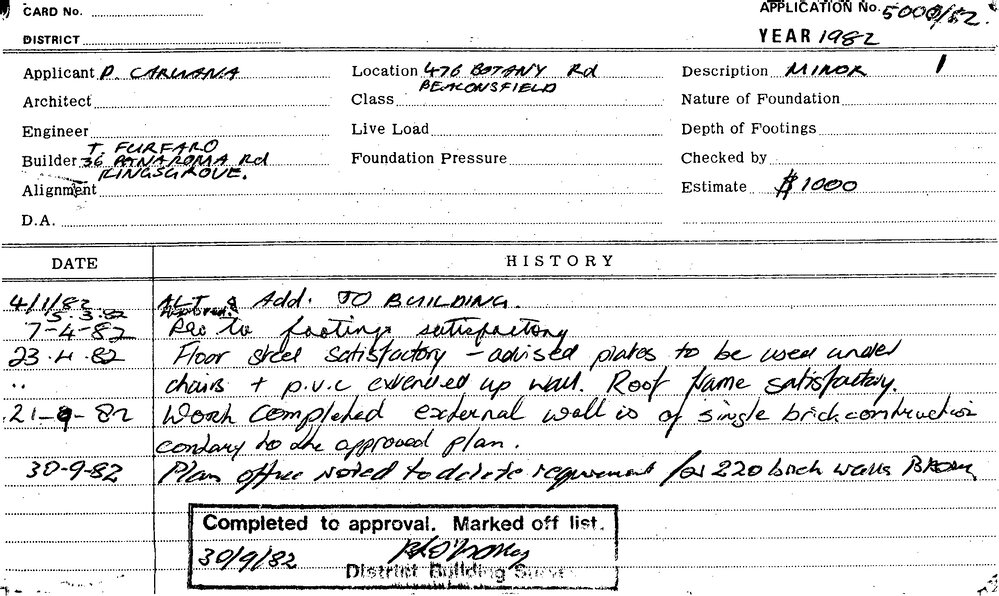 CARD No.
APPLICATION No. 5000/82.
DISTRICT
YEAR 1982
Applicant P. CARUANA Location 476 BOTANY Rd Description MINOR 1
BEACONSFIELD
Architect Class Nature of Foundation
Engineer Live Load Depth of Footings
T. FURFARO
Builder 36 PANAROMA Rd Foundation Pressure Checked by
KINGSGROVE.
Alignment Estimate $1000
D.A.
DATE HISTORY
4/1/82 ALT & Add. TO BUILDING.
5.3.82 Approved.
7-4-82 Rec to footings satisfactory
23.4.82 Floor steel satisfactory - advised plates to be used under
" chairs + p.v.c extended up wall. Roof frame satisfactory.
21-9-82 Work completed external wall is of single brick construction
contrary to the approved plan.
30-9-82 Plan office noted to delete requirement for 220 brick walls
Completed to approval. Marked off list.
30/9/82
District Building